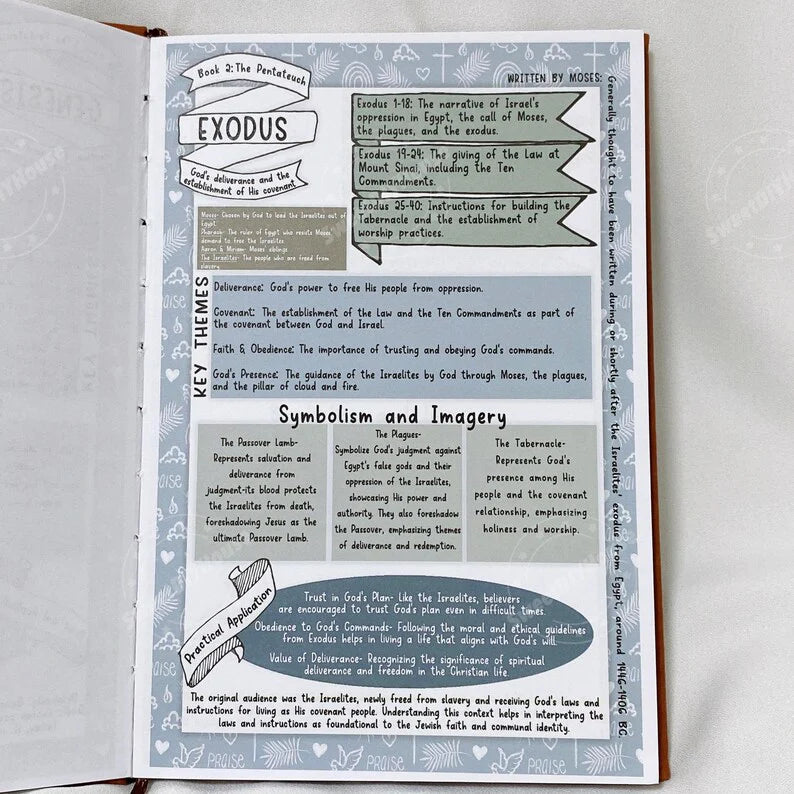 Book 2: The Pentateuch
EXODUS
God's deliverance and the
establishment of His covenant
WRITTEN BY MOSES:
Generally thought to have been written during or shortly after the Israelites' exodus from Egypt, around 1446-1406 BC.
Exodus 1-18: The narrative of Israel's
oppression in Egypt, the call of Moses,
the plagues, and the exodus.
Exodus 19-24: The giving of the Law at
Mount Sinai, including the Ten
Commandments.
Exodus 25-40: Instructions for building the
Tabernacle and the establishment of
worship practices.
Moses- Chosen by God to lead the Israelites out of
Egypt.
Pharaoh- The ruler of Egypt who resists Moses'
demand to free the Israelites
Aaron & Miriam- Moses' siblings
The Israelites- The people who are freed from
slavery
KEY THEMES
Deliverance: God's power to free His people from oppression.
Covenant: The establishment of the Law and the Ten Commandments as part of
the covenant between God and Israel.
Faith & Obedience: The importance of trusting and obeying God's commands.
God's Presence: The guidance of the Israelites by God through Moses, the plagues,
and the pillar of cloud and fire.
Symbolism and Imagery
The Passover Lamb-
Represents salvation and
deliverance from
judgment-its blood protects
the Israelites from death,
foreshadowing Jesus as the
ultimate Passover Lamb.
The Plagues-
Symbolize God's judgment against
Egypt's false gods and their
oppression of the Israelites,
showcasing His power and
authority. They also foreshadow
the Passover, emphasizing themes
of deliverance and redemption.
The Tabernacle-
Represents God's
presence among His
people and the covenant
relationship, emphasizing
holiness and worship.
Practical Application
Trust in God's Plan- Like the Israelites, believers
are encouraged to trust God's plan even in difficult times.
Obedience to God's Commands- Following the moral and ethical guidelines
from Exodus helps in living a life that aligns with God's will.
Value of Deliverance- Recognizing the significance of spiritual
deliverance and freedom in the Christian life.
The original audience was the Israelites, newly freed from slavery and receiving God's laws and
instructions for living as His covenant people. Understanding this context helps in interpreting the
laws and instructions as foundational to the Jewish faith and communal identity.
PRAISE
PRAISE
PRAISE
GENESIS